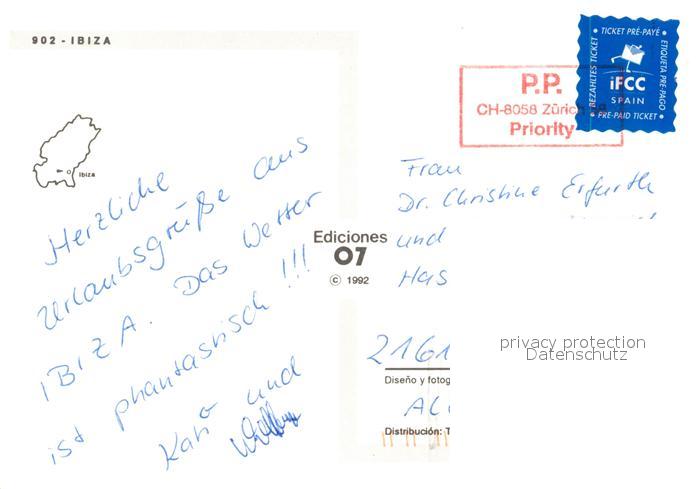 902 - IBIZA
Ibiza
Herzliche
Urlaubsgrüße aus
IBIZA. Das Wetter
ist phantastisch!!!
und
Ediciones
07
© 1992
P.P.
CH-8058 Zürich
Priority
TICKET PRÉ-PAYÉ
BEZAHLTES TICKET
ETIQUETA PRE-PAGO
iFCC
SPAIN
PRE-PAID TICKET
Frau
Dr. Christine Erfurth
und
Has
2161
Diseño y fotog
AL
Distribución: T
privacy protection
Datenschutz